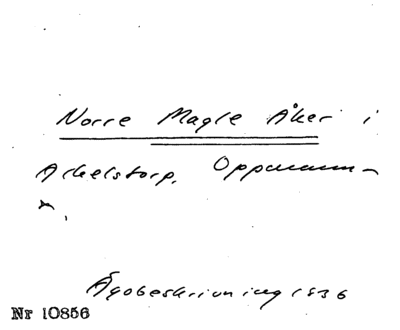 Norre Magle Åker i
Arkelstorp, Oppmann-
a,
Ägobeskrivning 1836
Nr 10856